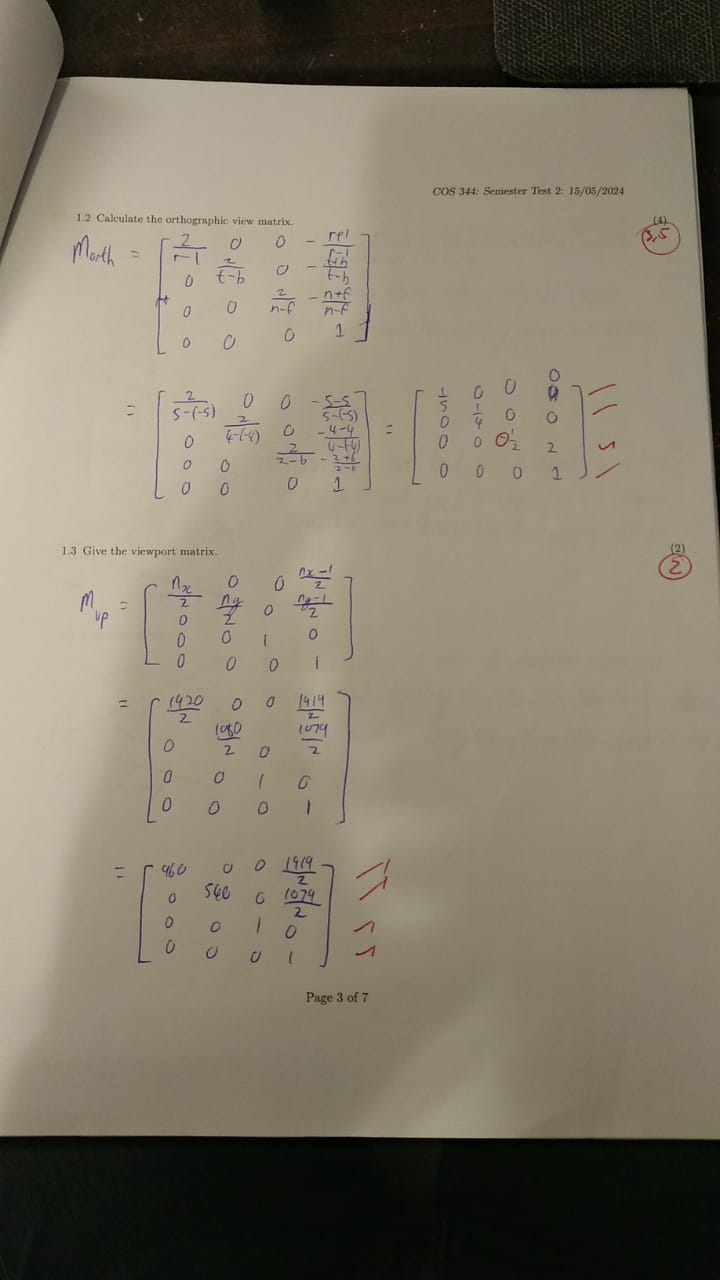 COS 344: Semester Test 2: 15/05/2024
1.2 Calculate the orthographic view matrix.
(4)
3,5
Morth = [ 2/r-l 0 0 - r+l/r-l
0 2/t-b 0 - t+b/t-b
0 0 2/n-f - n+f/n-f
0 0 0 1 ]
= [ 2/5-(-5) 0 0 - 5-5/5-(-5)
0 2/4-(-4) 0 - 4-4/4-(-4)
0 0 2/2-6 - 2+6/2-6
0 0 0 1 ]
= [ 1/5 0 0 0
0 1/4 0 0
0 0 1/2 2
0 0 0 1 ]
1.3 Give the viewport matrix.
(2)
2
Mvp = [ nx/2 0 0 nx-1/2
0 ny/2 0 ny-1/2
0 0 1 0
0 0 0 1 ]
= [ 1920/2 0 0 1919/2
0 1080/2 0 1079/2
0 0 1 0
0 0 0 1 ]
= [ 960 0 0 1919/2
0 540 0 1079/2
0 0 1 0
0 0 0 1 ]
Page 3 of 7